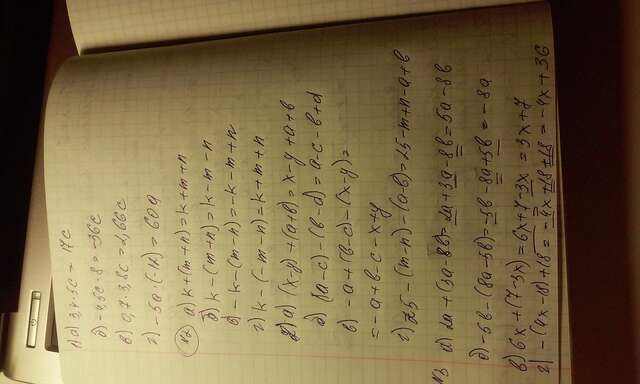 1) а) 3,4·5c = 17c
б) -4,5c·8 = -36c
в) 0,7·3,8c = 2,66c
г) -5a·(-12) = 60a
№2 а) k+(m+n)=k+m+n
б) k-(m+n)=k-m-n
в) -k-(m-n)=-k-m+n
г) k-(-m-n)=k+m+n
2) а) (x-y)+(a+b)=x-y+a+b
б) (a-c)-(b-d)=a-c-b+d
в) -a+(b-c)-(x-y)=
=-a+b-c-x+y
г) 25-(m-n)-(a-b)=25-m+n-a+b
№3 а) 2a+(3a-8b)=2a+3a-8b=5a-8b
б) -5b-(8a-5b)=-5b-8a+5b=-8a
в) 6x+(7-3x)=6x+7-3x=3x+7
г) -(4x-18)+18=-4x+18+18=-4x+36